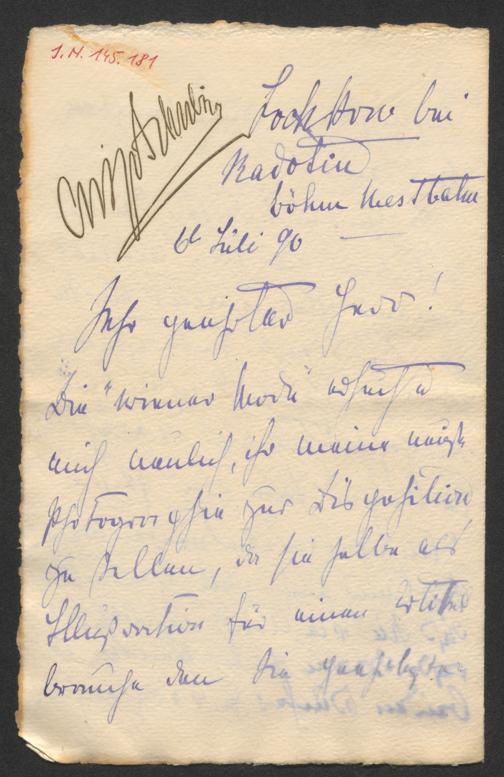 I.N. 145.181
Lochkow bei
Radotin
böhm Westbahn
6t Juli 90
Sehr geehrter Herr!
Die "Wiener Mode" ersuchte
mich neulich, ihr meine neueste
Photographie zur Disposition
zu stellen, da sie selbe als
Illustration für einen Artikel
brauche den Sie geehrtester